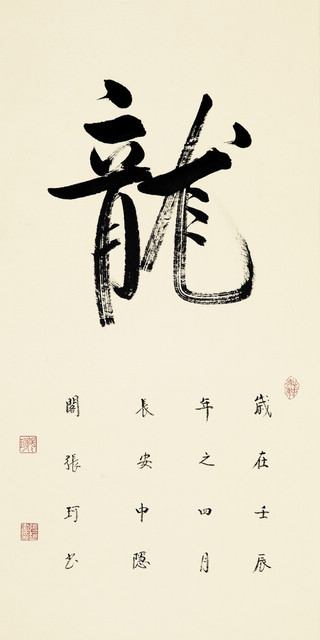 龍
歲在壬辰
年之四月
長安申隱
閣張珂書